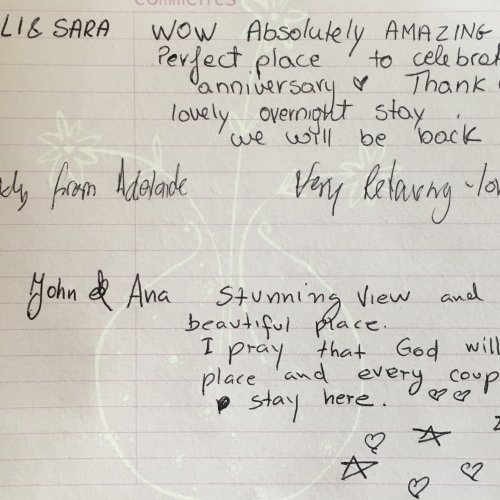 comments
LI & SARA WOW Absolutely AMAZING
Perfect place to celebrat
anniversary Thank
lovely overnight stay.
we will be back
from Adelaide Very Relaxing - lov
John & Ana Stunning view and
beautiful place.
I pray that God will
place and every coup
stay here.